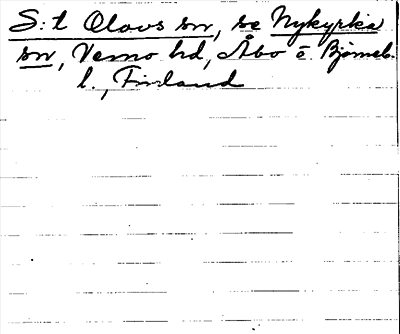 S:t Olovs sn, se Nykyrka
sn, Vemo hd, Åbo o. Björneb.
l., Finland